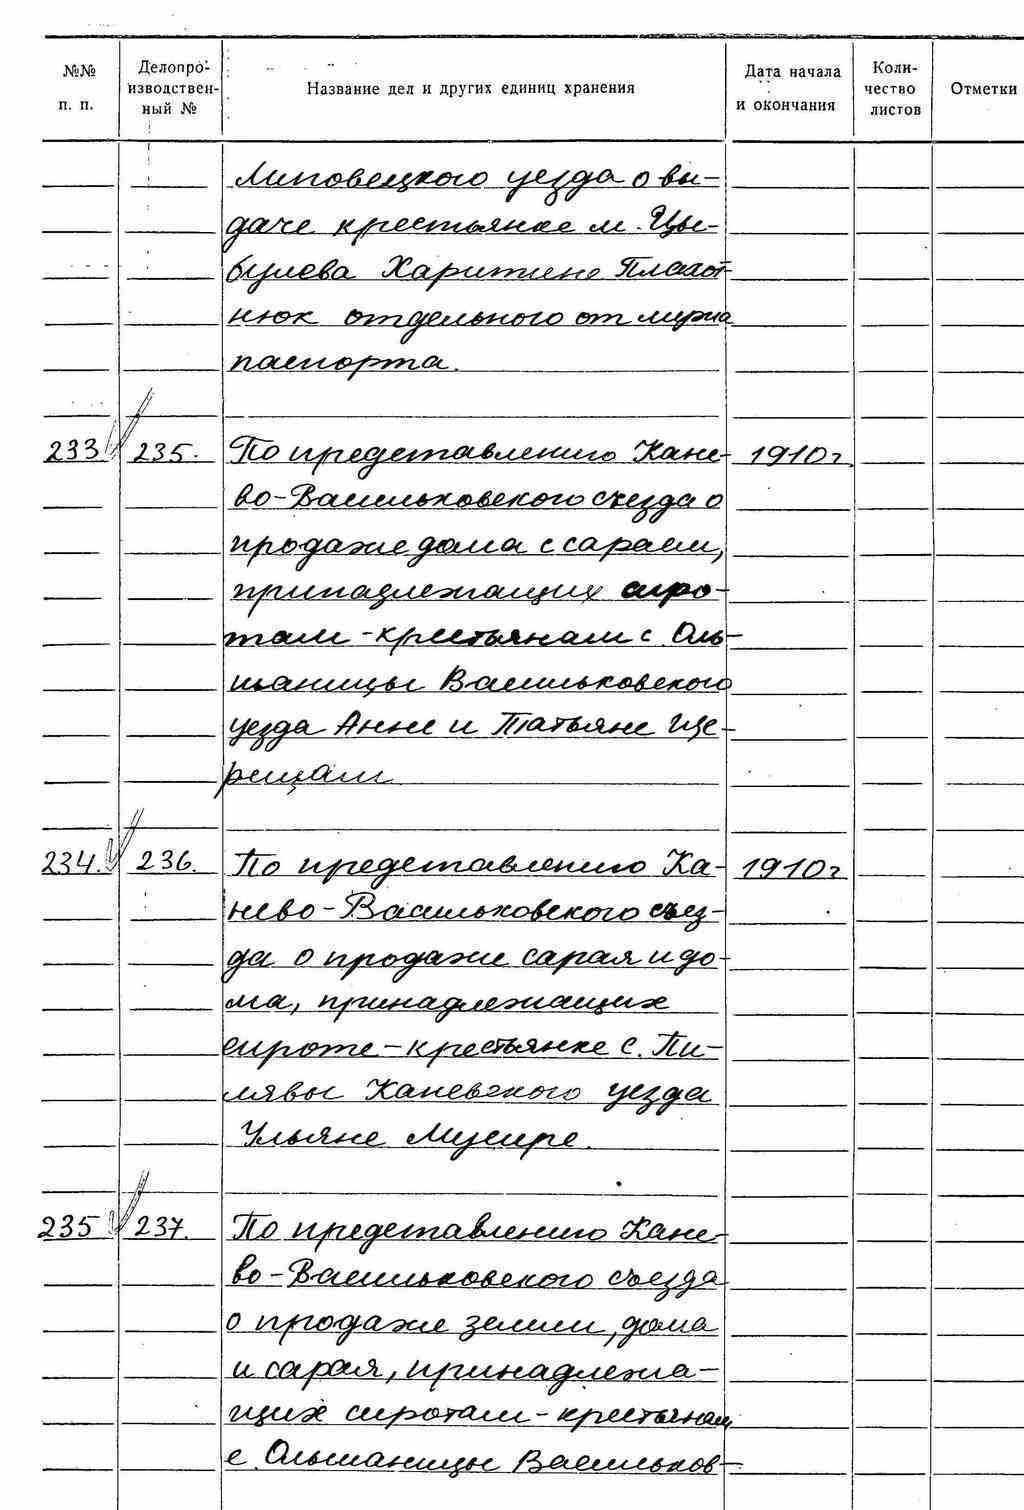 №№ п. п. Делопроизводствен-ный № Название дел и других единиц хранения Дата начала и окончания Коли-чество листов Отметки
Липовецкого уезда о вы-
даче крестьянке м. Цы-
булева Харитине Плахот-
нюк отдельного от мужа
паспорта.
233 235. По представлению Кане- 1910 г.
во-Васильковского съезда о
продаже дома с сараем,
принадлежащих сиро-
там-крестьянам с. Оль-
шаницы Васильковского
уезда Анне и Татьяне Ще-
рещам
234. 236. По представлению Ка- 1910 г
нево-Васильковского съез-
да о продаже сарая и до-
ма, принадлежащих
сироте-крестьянке с. Пи-
лявы Каневского уезда
Ульяне Мусире.
235 237. По представлению Кане-
во-Васильковского съезда
о продаже земли, дома
и сарая, принадлежа-
щих сиротам-крестьянам
с. Ольшаницы Васильков-